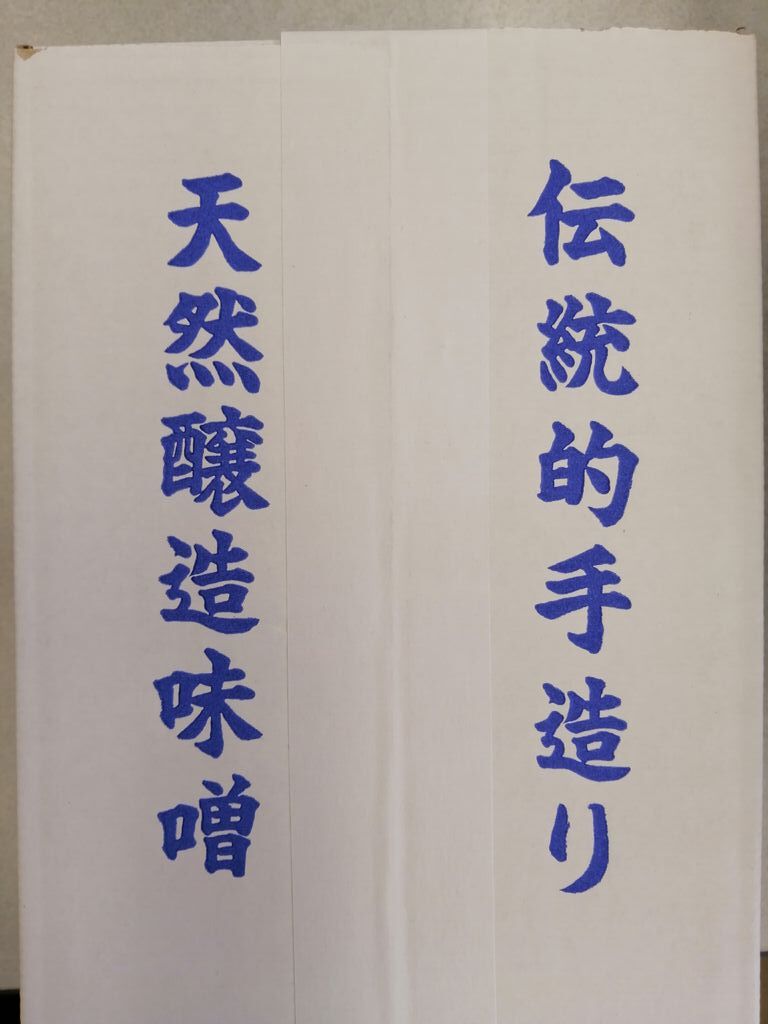 伝統的手造り
天然醸造味噌